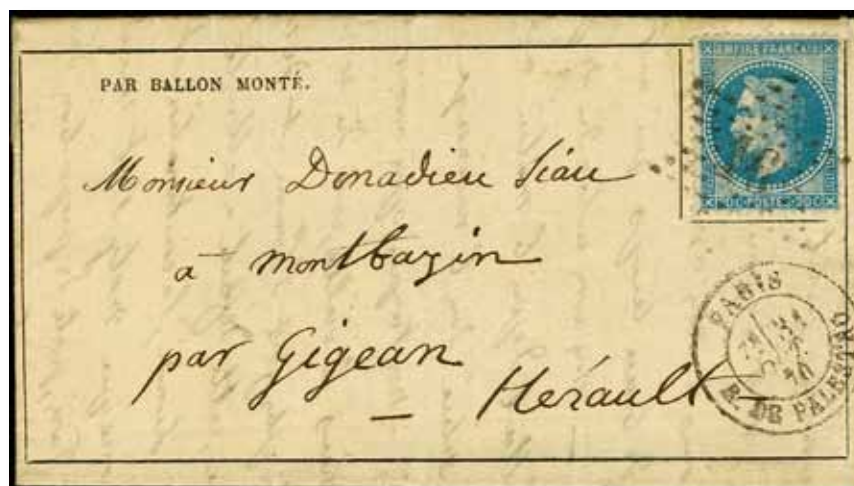 PAR BALLON MONTÉ.
EMPIRE FRANÇAIS
20 C POSTE 20 C
Monsieur Donadieu Siau
à Montbazin
par Gigean
Hérault
PARIS
70
R. DE PALESTRO